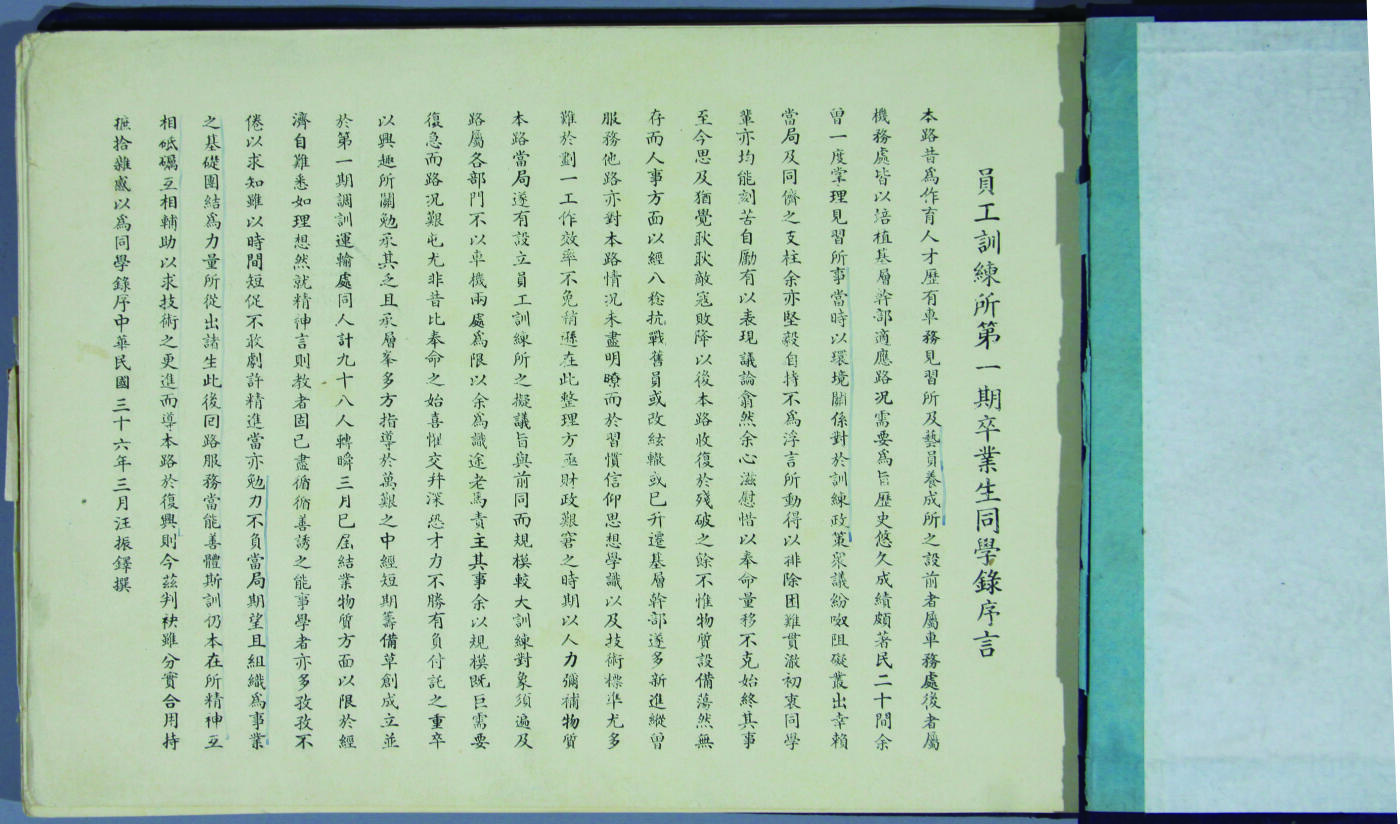 員工訓練所第一期卒業生同學錄序言
本路昔爲作育人才歷有車務見習所及藝員養成所之設前者屬車務處後者屬
機務處皆以培植基層幹部適應路况需要爲旨歷史悠久成績頗著民二十間余
曾一度掌理見習所事當時以環境關係對於訓練政策衆議紛呶阻礙叢出幸賴
當局及同儕之支柱余亦堅毅自持不爲浮言所動得以排除困難貫澈初衷同學
輩亦均能刻苦自勵有以表現議論翕然余心滋慰惜以奉命量移不克始終其事
至今思及猶覺耿耿敵寇敗降以後本路收復於殘破之餘不惟物質設備蕩然無
存而人事方面以經八稔抗戰舊員或改絃轍或已升遷基層幹部遂多新進縱曾
服務他路亦對本路情况未盡明瞭而於習慣信仰思想學識以及技術標準尤多
難於劃一工作效率不免稍遜在此整理方亟財政艱窘之時期以人力彌補物質
本路當局遂有設立員工訓練所之擬議旨與前同而規模較大訓練對象須遍及
路屬各部門不以車機兩處爲限以余爲識途老馬責主其事余以規模既巨需要
復急而路况艱屯尤非昔比奉命之始喜惧交幷深恐才力不勝有負付託之重卒
以興趣所關勉承其乏且承層峯多方指導於萬艱之中經短期籌備草創成立並
於第一期調訓運輸處同人計九十八人轉瞬三月已屆結業物質方面以限於經
濟自難悉如理想然就精神言則教者固已盡循循善誘之能事學者亦多孜孜不
倦以求知雖以時間短促不敢劇許精進當亦勉力不負當局期望且組織爲事業
之基礎團結爲力量所從出諸生此後回路服務當能善體斯訓仍本在所精神互
相砥礪互相輔助以求技術之更進而導本路於復興則今茲判袂雖分實合用持
摭拾雜感以爲同學錄序中華民國三十六年三月汪振鐸撰